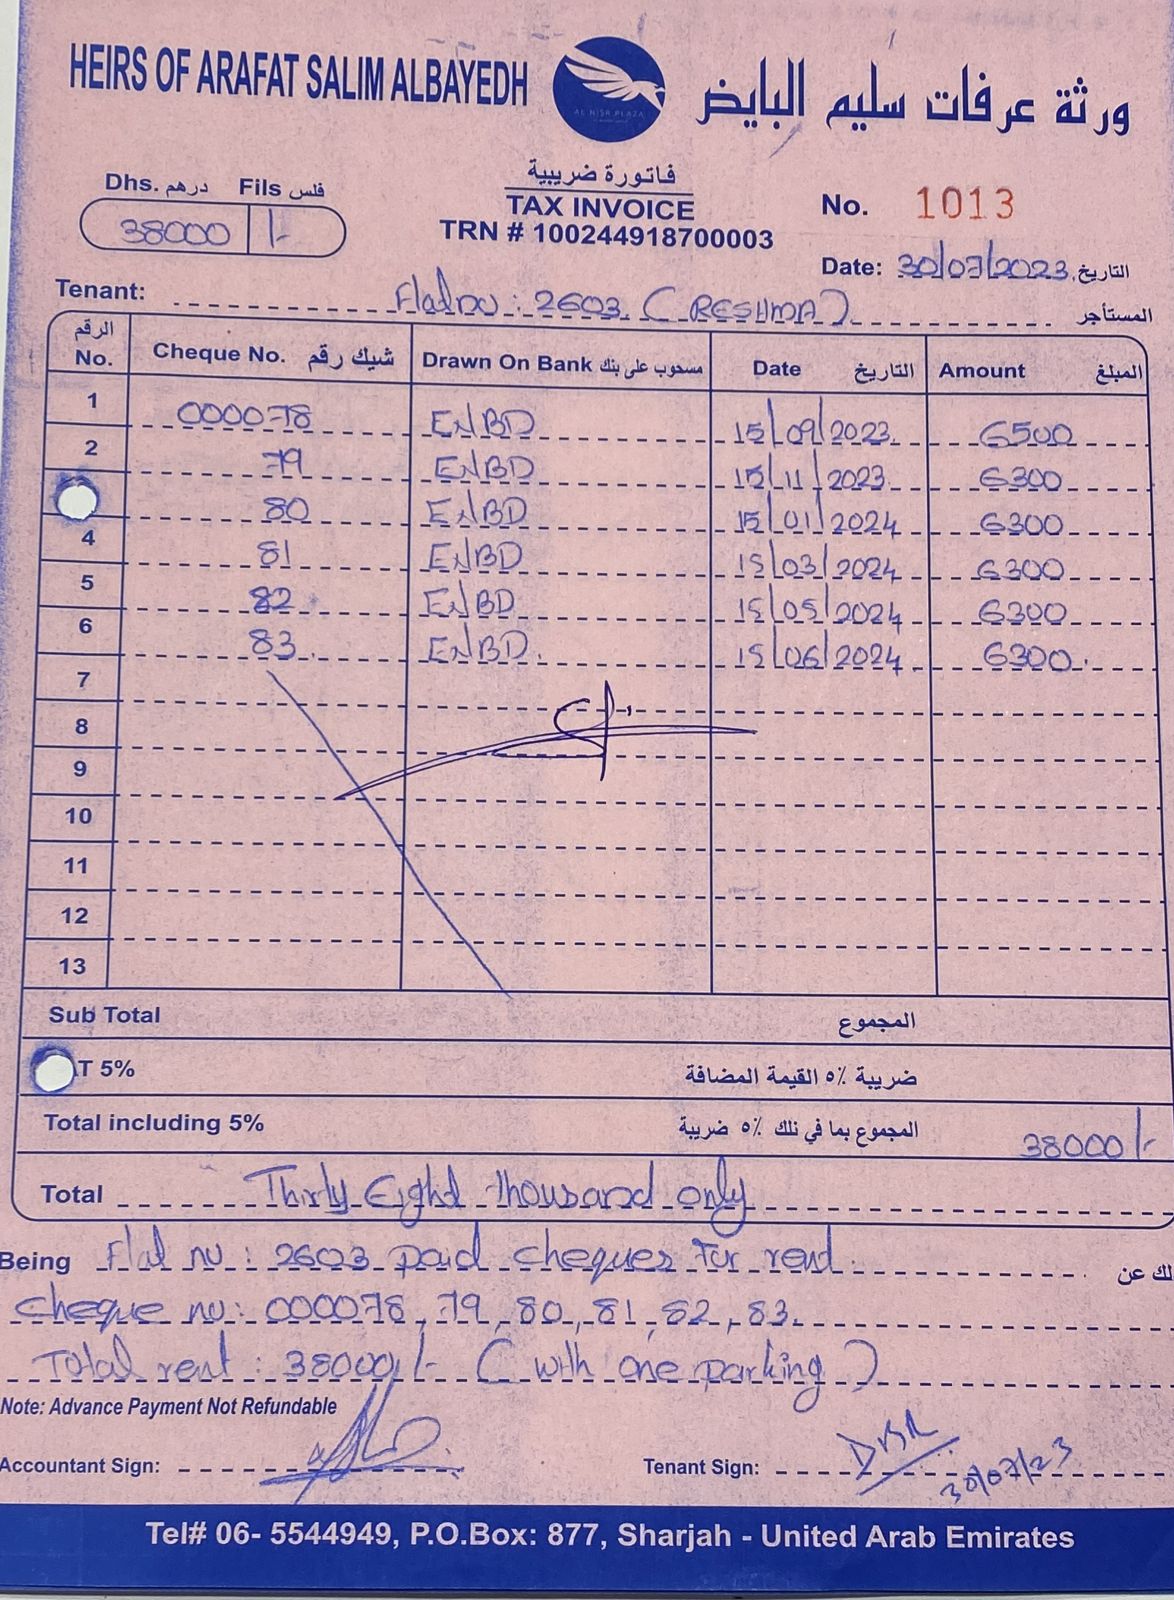 HEIRS OF ARAFAT SALIM ALBAYEDH
AL NISR PLAZA
ورثة عرفات سليم البايض
Dhs. درهم Fils فلس
38000 /-
فاتورة ضريبية
TAX INVOICE
TRN # 100244918700003
No. 1013
Date: 30/07/2023 التاريخ.
Tenant: Flat no : 2603 (RESHMA) المستأجر
الرقم No. Cheque No. شيك رقم Drawn On Bank مسحوب على بنك Date التاريخ Amount المبلغ
1 000078 ENBD 15/09/2023 6500
2 79 ENBD 15/11/2023 6300
80 ENBD 15/01/2024 6300
4 81 ENBD 15/03/2024 6300
5 82 ENBD 15/05/2024 6300
6 83. ENBD. 15/06/2024 6300.
7
8
9
10
11
12
13
Sub Total المجموع
T 5% ضريبة ٪٥ القيمة المضافة
Total including 5% المجموع بما في ذلك ٪٥ ضريبة 38000/-
Total Thirty Eight thousand only
Being Flat no : 2603 paid cheques for rent لك عن
Cheque no: 000078, 79, 80, 81, 82, 83.
Total rent : 38000/- (with one parking)
Note: Advance Payment Not Refundable
Accountant Sign:
Tenant Sign: 30/07/23
Tel# 06- 5544949, P.O.Box: 877, Sharjah - United Arab Emirates